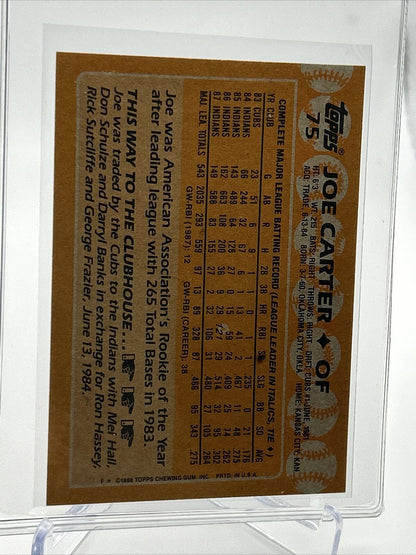 topps®
75 JOE CARTER ♦ OF
HT: 6'3" WT: 215 BATS: RIGHT THROWS: RIGHT DRFT: CUBS #1-JUNE, 1981
ACQ: TRADE, 6-13-84 BORN: 3-7-60, OKLAHOMA CITY, OKLA. HOME: KANSAS CITY, KAN.
COMPLETE MAJOR LEAGUE BATTING RECORD (LEAGUE LEADER IN ITALICS, TIE ♦)
YR CLUB G AB R H 2B 3B HR RBI SB SLG BB SO AVG
83 CUBS 23 51 6 9 1 1 0 1 1 .235 0 21 .176
84 INDIANS 66 244 32 67 6 1 13 41 2 .467 11 48 .275
85 INDIANS 143 489 64 128 27 0 15 59 24 .409 25 74 .262
86 INDIANS 162 663 108 200 36 9 29 121 29 .514 32 90 .302
87 INDIANS 149 588 83 155 27 2 32 106 31 .480 27 105 .264
MAJ. LEA. TOTALS 543 2035 293 559 97 13 89 328 87 .468 95 343 .275
GW-RBI (1987): 12 GW-RBI (CAREER): 38
Joe was American Association's Rookie of the Year
after leading league with 265 Total Bases in 1983.
THIS WAY TO THE CLUBHOUSE...
Joe was traded by the Cubs to the Indians with Mel Hall,
Don Schulze and Darryl Banks in exchange for Ron Hassey,
Rick Sutcliffe and George Frazier, June 13, 1984.
F * ©1988 TOPPS CHEWING GUM, INC. PRTD. IN U.S.A.